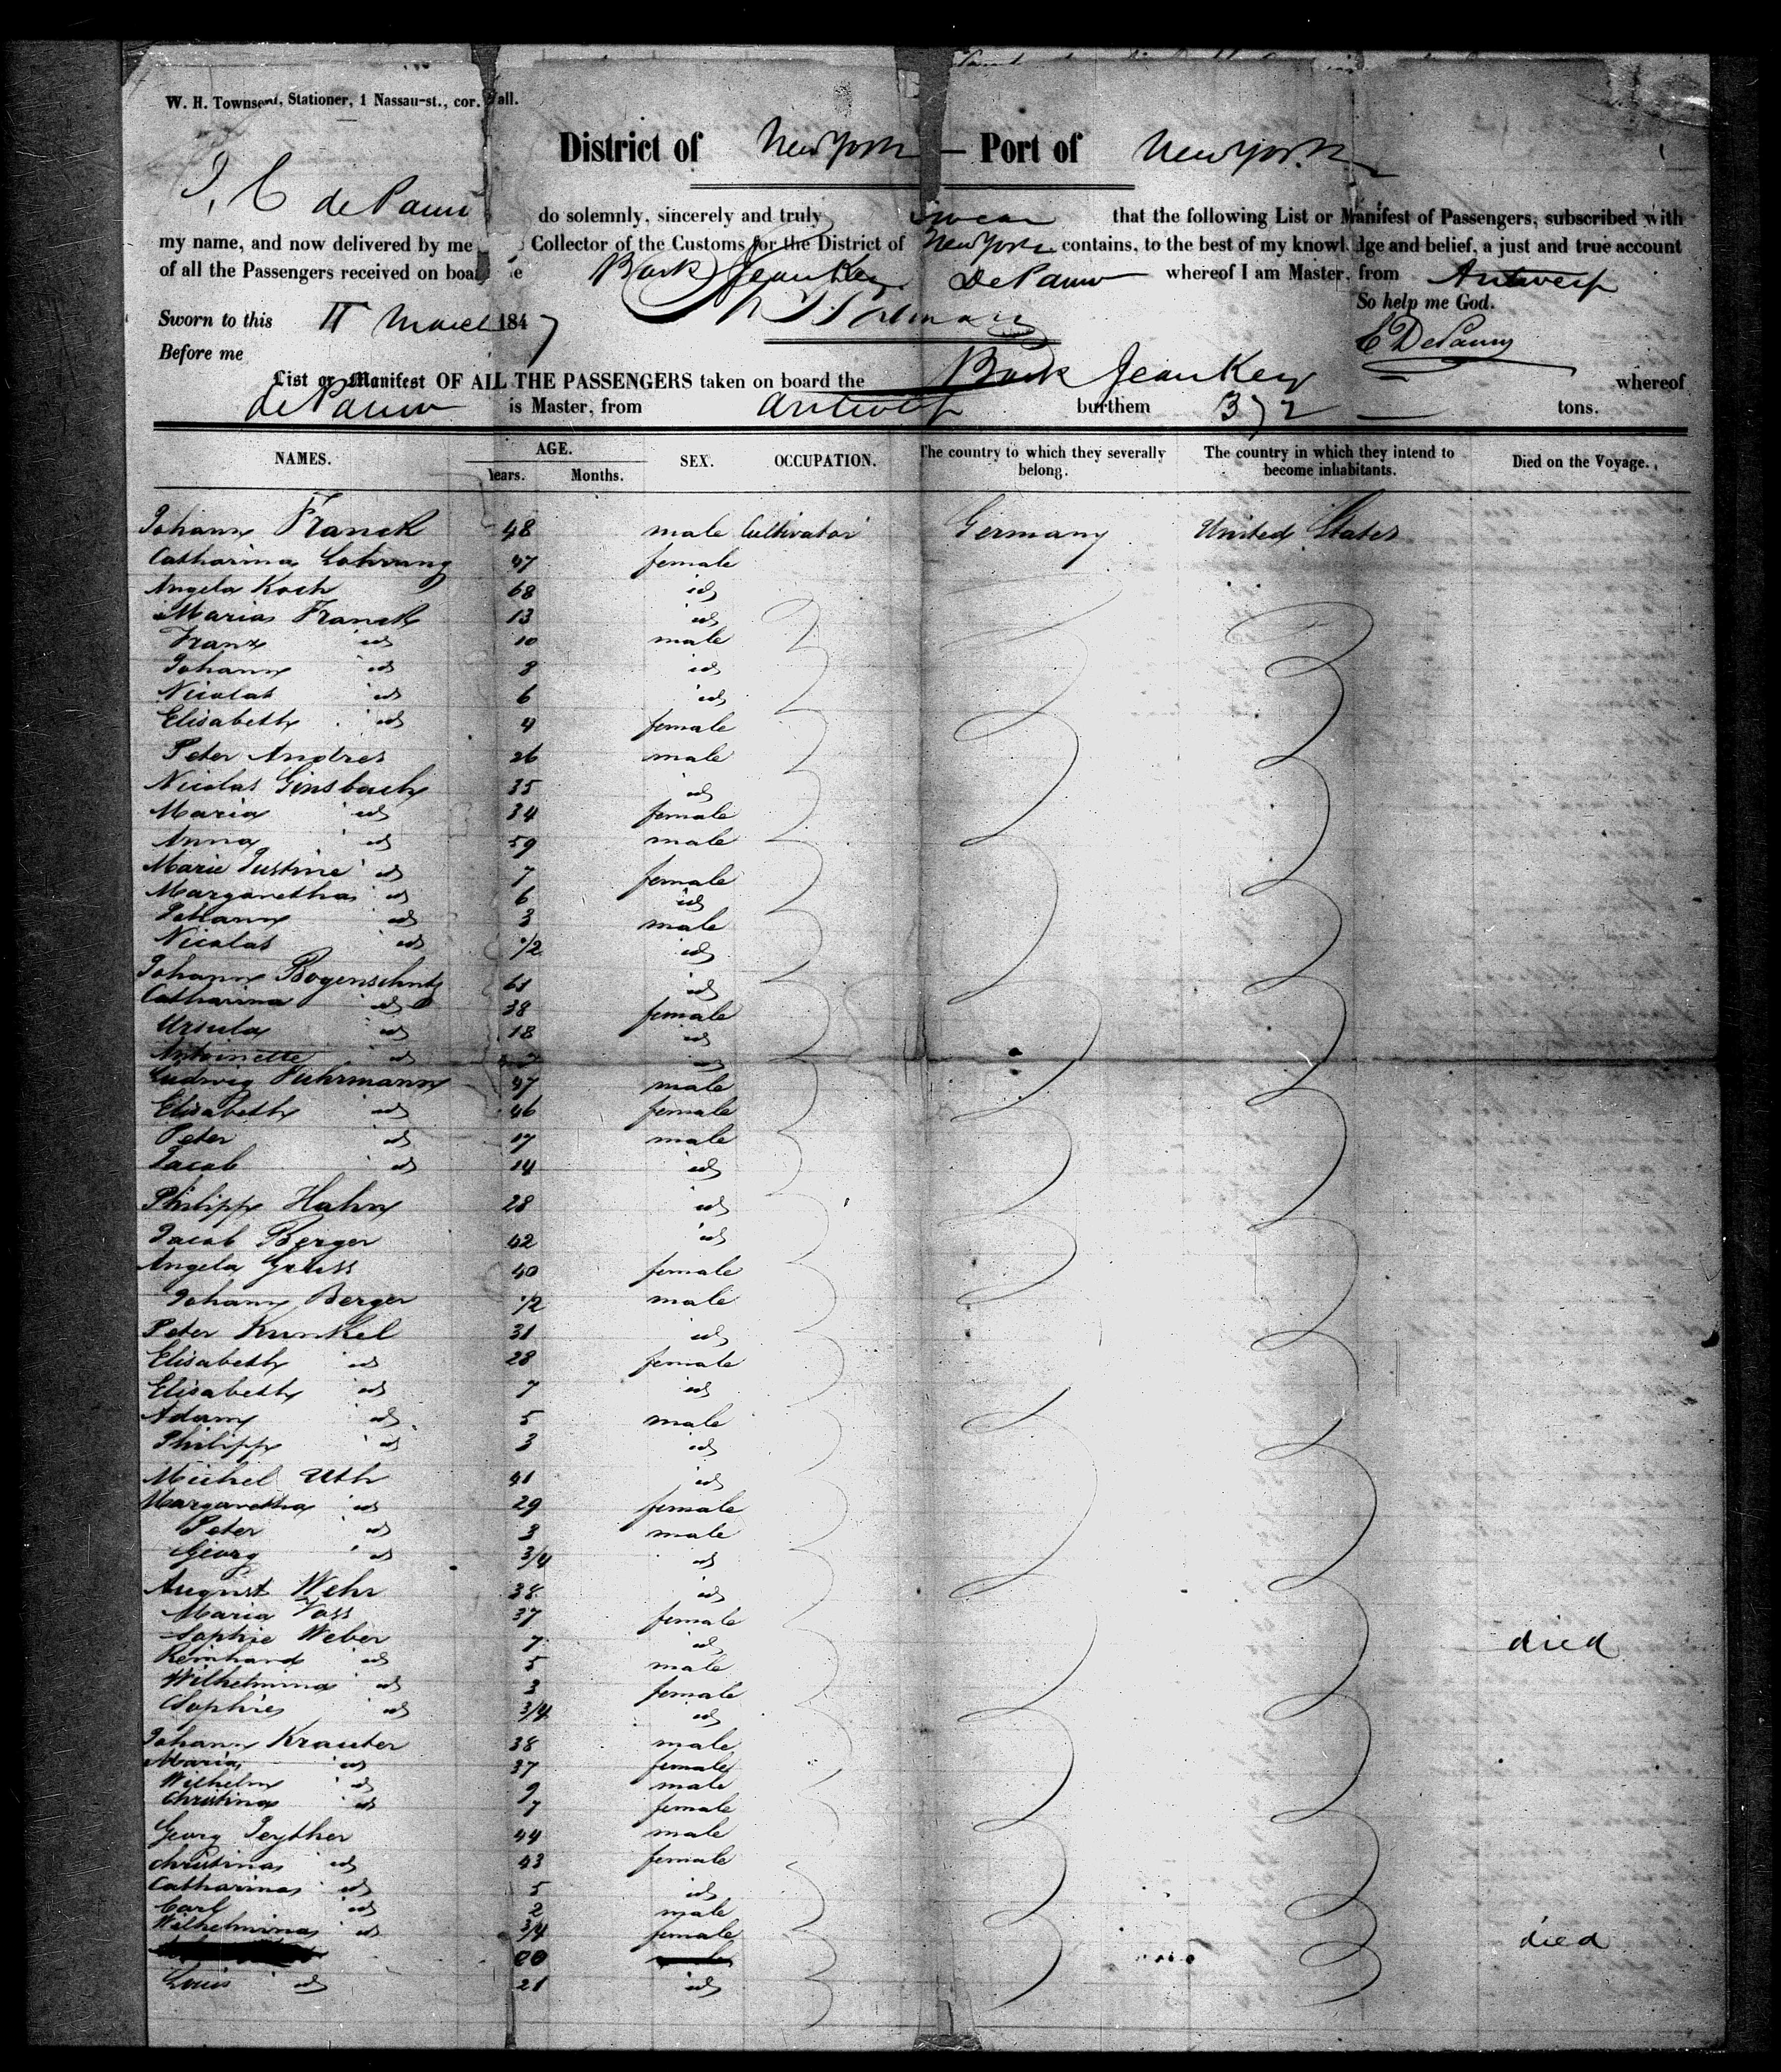 W. H. Townsend, Stationer, 1 Nassau-st., cor. Wall.
District of New York — Port of New York
I, E de Pauw do solemnly, sincerely and truly swear that the following List or Manifest of Passengers, subscribed with
my name, and now delivered by me Collector of the Customs for the District of New York contains, to the best of my knowledge and belief, a just and true account
of all the Passengers received on board the Bark Jean Key De Pauw whereof I am Master, from Antwerp
So help me God.
Sworn to this 11 March 1847
E De Pauw
Before me
List or Manifest OF ALL THE PASSENGERS taken on board the Bark Jean Key whereof
de Pauw is Master, from Antwerp burthem 372 — tons.
NAMES. AGE. SEX. OCCUPATION. The country to which they severally belong. The country in which they intend to become inhabitants. Died on the Voyage.
Years. Months.
Johann Franck 48 male Cultivator Germany United States
Catharina Lohrung 47 female
Angela Koch 68 id
Maria Franck 13 id
Franz id 10 male
Johann id 8 id
Nicolas id 6 id
Elisabeth id 4 female
Peter Andres 26 male
Nicolas Ginsbach 35 id
Maria id 34 female
Anna id 59 male
Marie Justine id 7 female
Margaretha id 6 id
Johann id 3 male
Nicolas id 1/2 id
Johann Bogenschutz 61 id
Catharina id 38 female
Ursula id 18 id
Antoinette id 7 id
Ludwig Fuhrmann 47 male
Elisabeth id 46 female
Peter id 17 male
Jacob id 14 id
Philipp Hahn 28 id
Jacob Berger 42 id
Angela Gruss 40 female
Johann Berger 1/2 male
Peter Kunkel 31 id
Elisabeth id 28 female
Elisabeth id 7 id
Adam id 5 male
Philipp id 3 id
Michel Uth 41 id
Margaretha id 29 female
Peter id 3 male
Georg id 3/4 id
August Wehr 38 id
Maria Voss 37 female
Sophie Weber 7 id died
Reinhard id 5 male
Wilhelmina id 3 female
Sophie id 3/4 id
Johann Krauter 38 male
Maria id 37 female
Wilhelm id 9 male
Christina id 7 female
Georg Teyther 44 male
Christina id 43 female
Catharina id 5 id
Carl id 2 male
Wilhelmina id 3/4 female died
20
Louis id 21 id